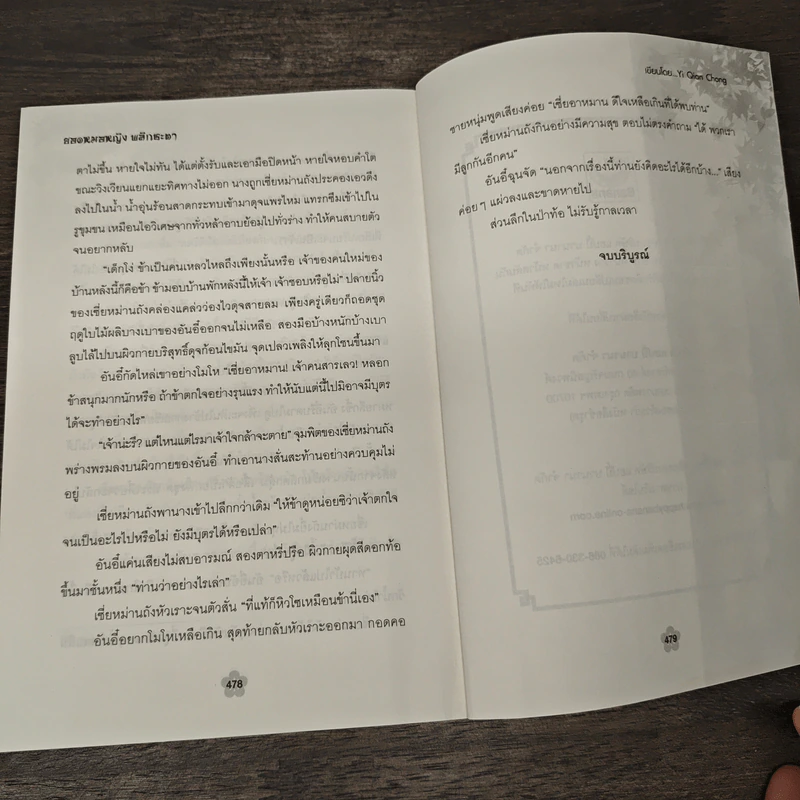 ยอดหมอหญิง พลิกชะตา
ตาไม่ขึ้น หายใจไม่ทัน ได้แต่ตั้งรับและเอามือปิดหน้า หายใจหอบคำโต
ขณะวิงเวียนแยกแยะทิศทางไม่ออก นางถูกเซี่ยหม่านถังประคองเอวดึง
ลงไปในน้ำ น้ำอุ่นร้อนสาดกระทบเข้ามาดุจแพรไหม แทรกซึมเข้าไปใน
รูขุมขน เหมือนไอวิเศษจากทั่วหล้าอาบย้อมไปทั่วร่าง ทำให้คนสบายตัว
จนอยากหลับ
“เด็กโง่ ข้าเป็นคนเหลวไหลถึงเพียงนั้นหรือ เจ้าของคนใหม่ของ
บ้านหลังนี้ก็คือข้า ข้ามอบบ้านพักหลังนี้ให้เจ้า เจ้าชอบหรือไม่” ปลายนิ้ว
ของเซี่ยหม่านถังคล่องแคล่วว่องไวดุจสายลม เพียงครู่เดียวก็ถอดชุด
ฤดูใบไม้ผลิบางเบาของอันอี๋ออกจนไม่เหลือ สองมือบ้างหนักบ้างเบา
ลูบไล้ไปบนผิวกายบริสุทธิ์ดุจก้อนไขมัน จุดเปลวเพลิงให้ลุกโชนขึ้นมา
อันอี๋กัดไหล่เขาอย่างโมโห “เซี่ยอาหมาน! เจ้าคนสารเลว! หลอก
ข้าสนุกมากนักหรือ ถ้าข้าตกใจอย่างรุนแรง ทำให้นับแต่นี้ไปมิอาจมีบุตร
ได้จะทำอย่างไร”
“เจ้าน่ะรึ? แต่ไหนแต่ไรมาเจ้าใจกล้าจะตาย” จุมพิตของเซี่ยหม่านถัง
พร่างพรมลงบนผิวกายของอันอี๋ ทำเอานางสั่นสะท้านอย่างควบคุมไม่
อยู่
เซี่ยหม่านถังพานางเข้าไปลึกกว่าเดิม “ให้ข้าดูหน่อยซิว่าเจ้าตกใจ
จนเป็นอะไรไปหรือไม่ ยังมีบุตรได้หรือเปล่า”
อันอี๋แค่นเสียงไม่สบอารมณ์ สองตาหรี่ปรือ ผิวกายผุดสีดอกท้อ
ขึ้นมาชั้นหนึ่ง “ท่านว่าอย่างไรเล่า”
เซี่ยหม่านถังหัวเราะจนตัวสั่น “ที่แท้ก็หิวโซเหมือนข้านี่เอง”
อันอี๋อยากโมโหเหลือเกิน สุดท้ายกลับหัวเราะออกมา กอดคอ
478
เขียนโดย...Yi Qian Chong
ชายหนุ่มพูดเสียงค่อย “เซี่ยอาหมาน ดีใจเหลือเกินที่ได้พบท่าน”
เซี่ยหม่านถังกินอย่างมีความสุข ตอบไม่ตรงคำถาม “ได้ พวกเรา
มีลูกกันอีกคน”
อันอี๋ฉุนจัด “นอกจากเรื่องนี้ท่านยังคิดอะไรได้อีกบ้าง...” เสียง
ค่อยๆ แผ่วลงและขาดหายไป
ส่วนลึกในป่าท้อ ไม่รับรู้กาลเวลา
จบบริบูรณ์
479